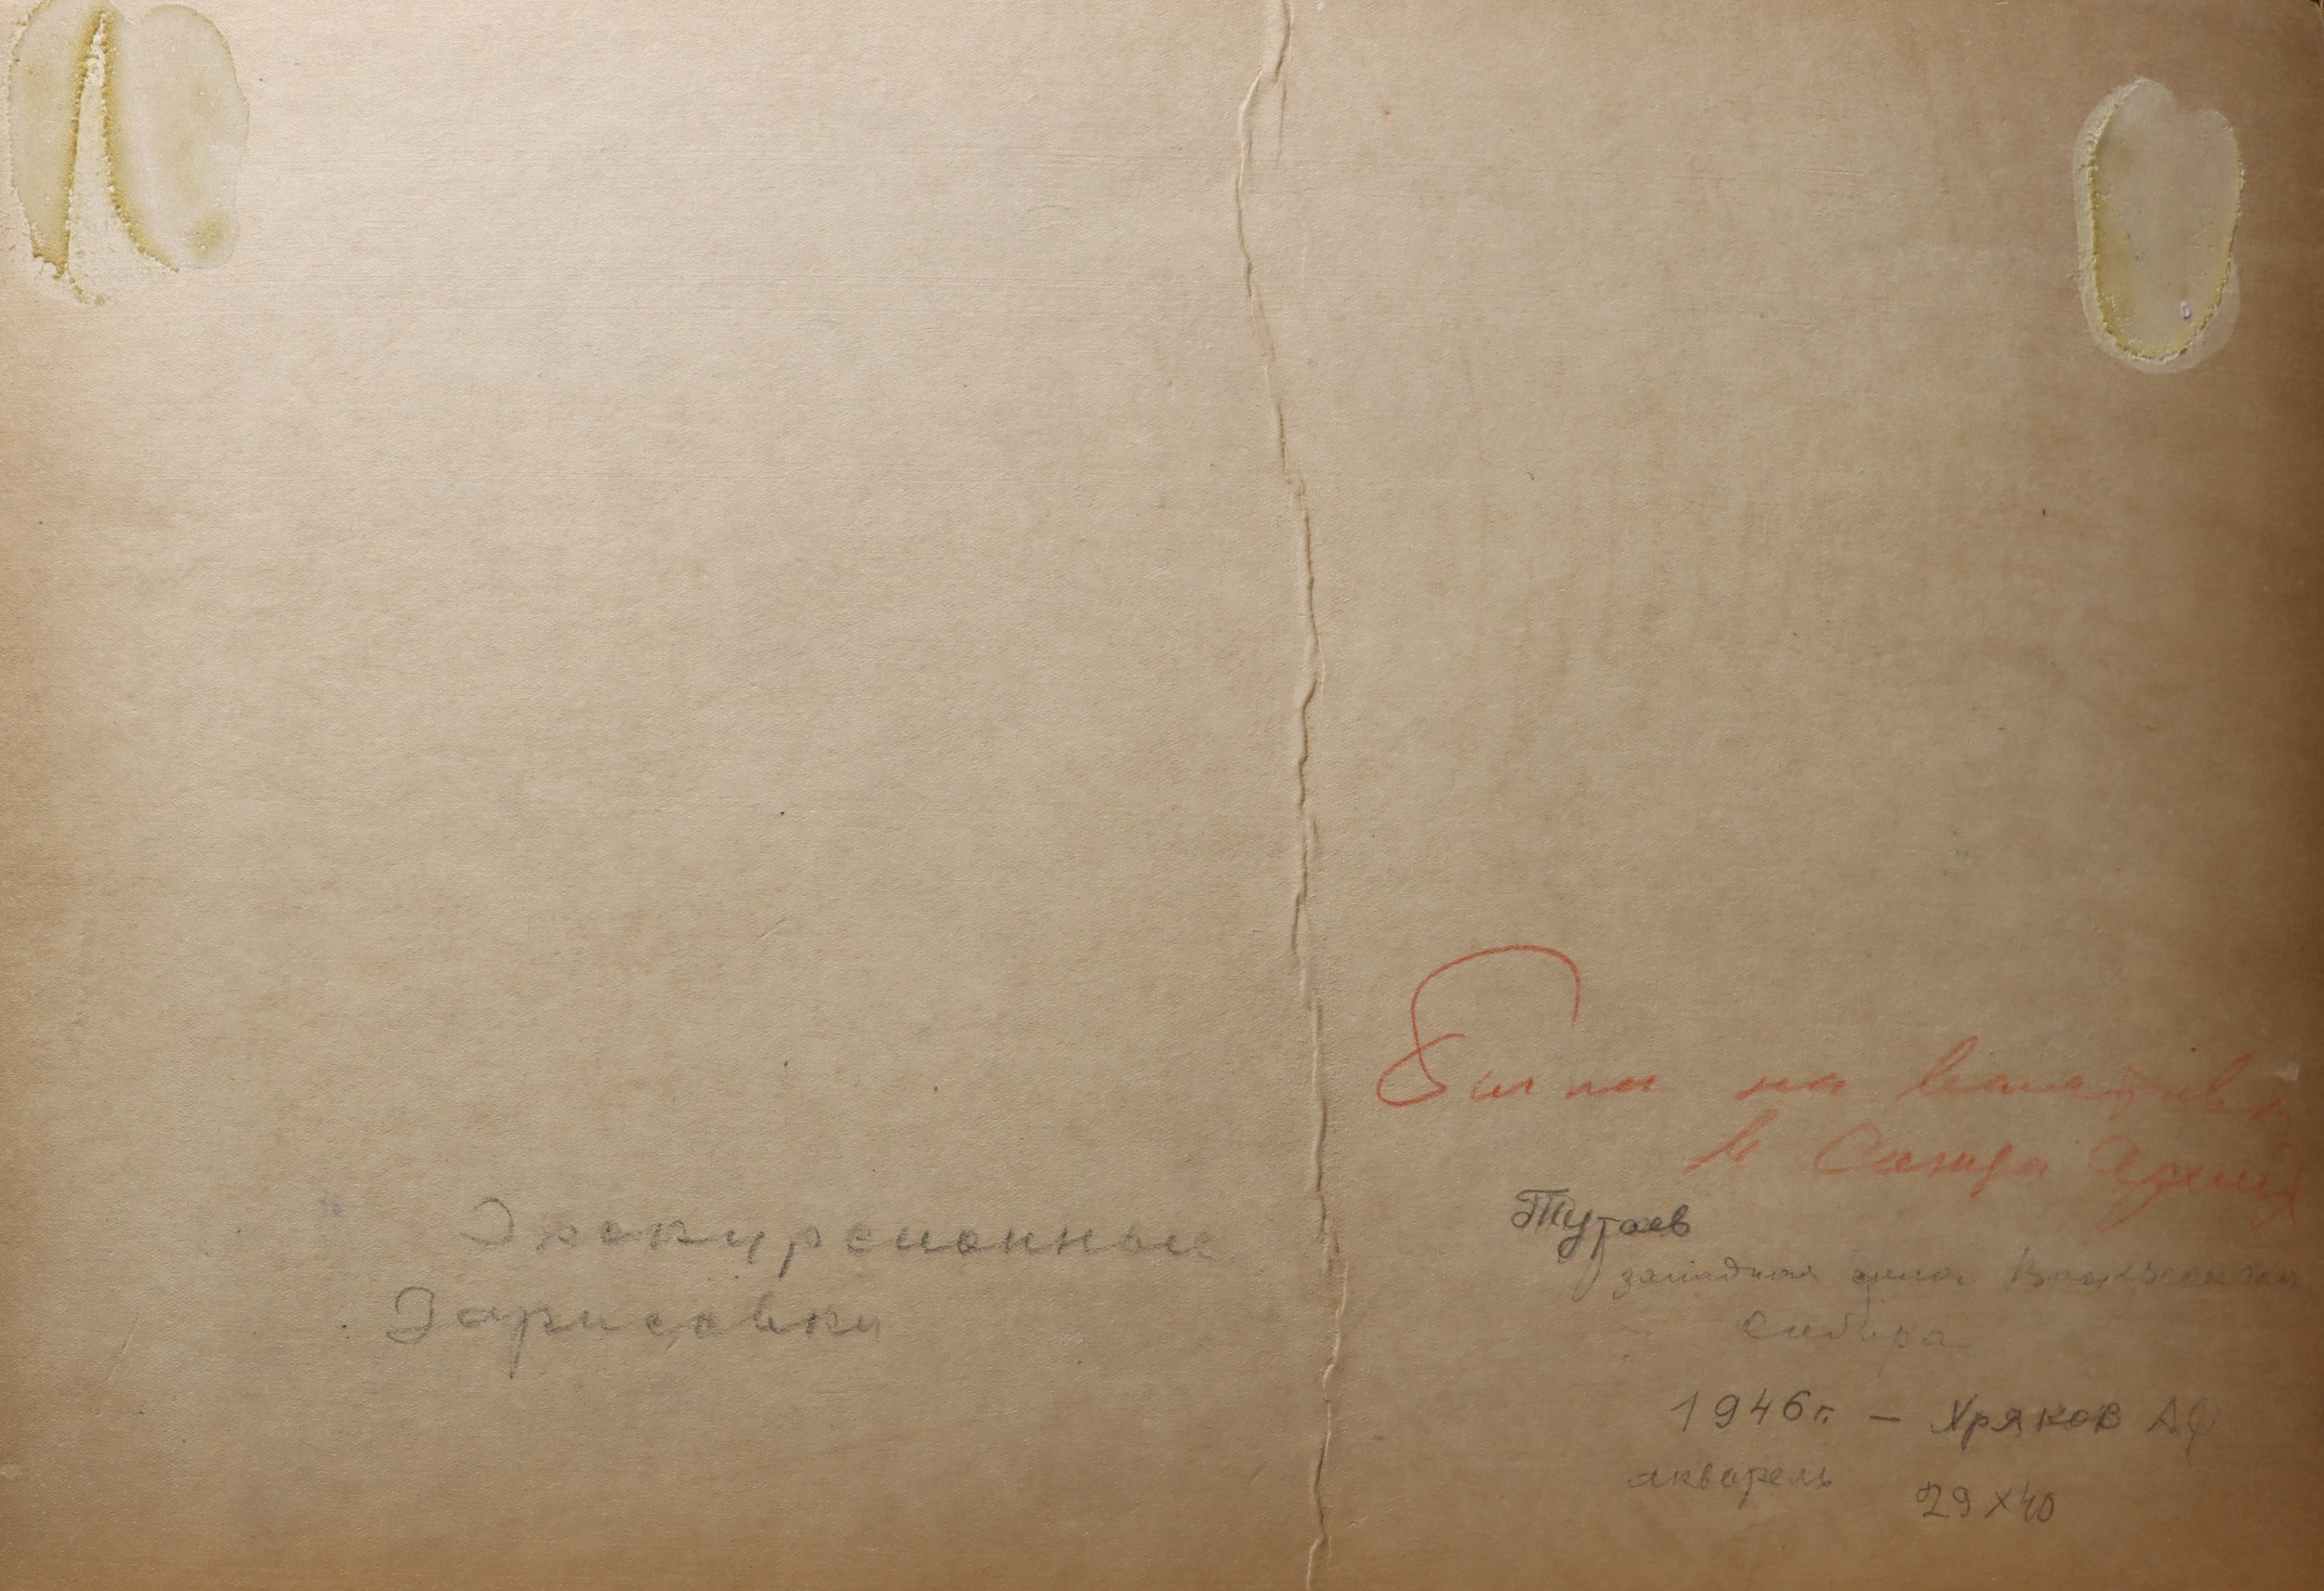 Экскурсионные
Зарисовки
Была на выставке
в Союза
Тутаев
западная Воскресенского
Собора
1946 г. – Хряков АФ
акварель 29 х 40